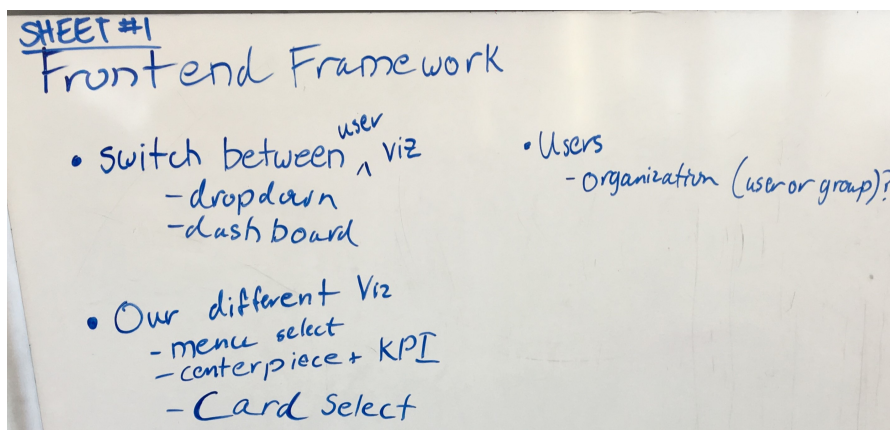 SHEET #1
Frontend Framework
• switch between user viz
- dropdown
- dashboard
• Our different Viz
- menu select
- centerpiece + KPI
- Card Select
• Users
- organization (user or group)?